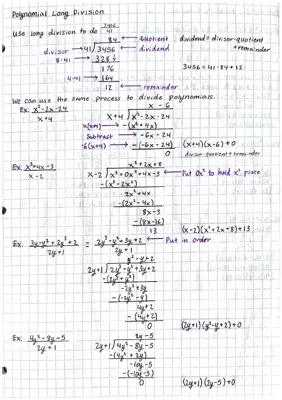 Polynomial Long Division
Use long division to do 3456/41
84 ← quotient
divisor → 41/3456 ← dividend
dividend = divisor·quotient + remainder
8·41 → 328↓
176
3456 = 41·84 + 12
4·41 → 164
12 ← remainder
We can use the same process to divide polynomials.
Ex. x²-2x-24 / x+4
x - 6
x+4 / x²-2x-24
x(x+4) → -(x²+4x)
Subtract → -6x-24
-6(x+4) → -(-6x-24)
(x+4)(x-6)+0
0
divisor·quotient+remainder
Ex. x³+4x-3 / x-2
x²+2x+8
x-2 / x³+0x²+4x-3 ← Put 0x² to hold x² place
-(x³-2x²)
2x²+4x
-(2x²-4x)
8x-3
-(8x-16)
13
(x-2)(x²+2x+8)+13
Ex. 3y-y²+2y³+2 / 2y+1 = 2y³-y²+3y+2 / 2y+1 ← Put in order
y²-y+2
2y+1 / 2y³-y²+3y+2
-(2y³+y²)
-2y²+3y
-(-2y²-y)
4y+2
-(4y+2)
0
(2y+1)(y²-y+2)+0
Ex. 4y²-8y-5 / 2y+1
2y-5
2y+1 / 4y²-8y-5
-(4y²+2y)
-10y-5
-(-10y-5)
0
(2y+1)(2y-5)+0